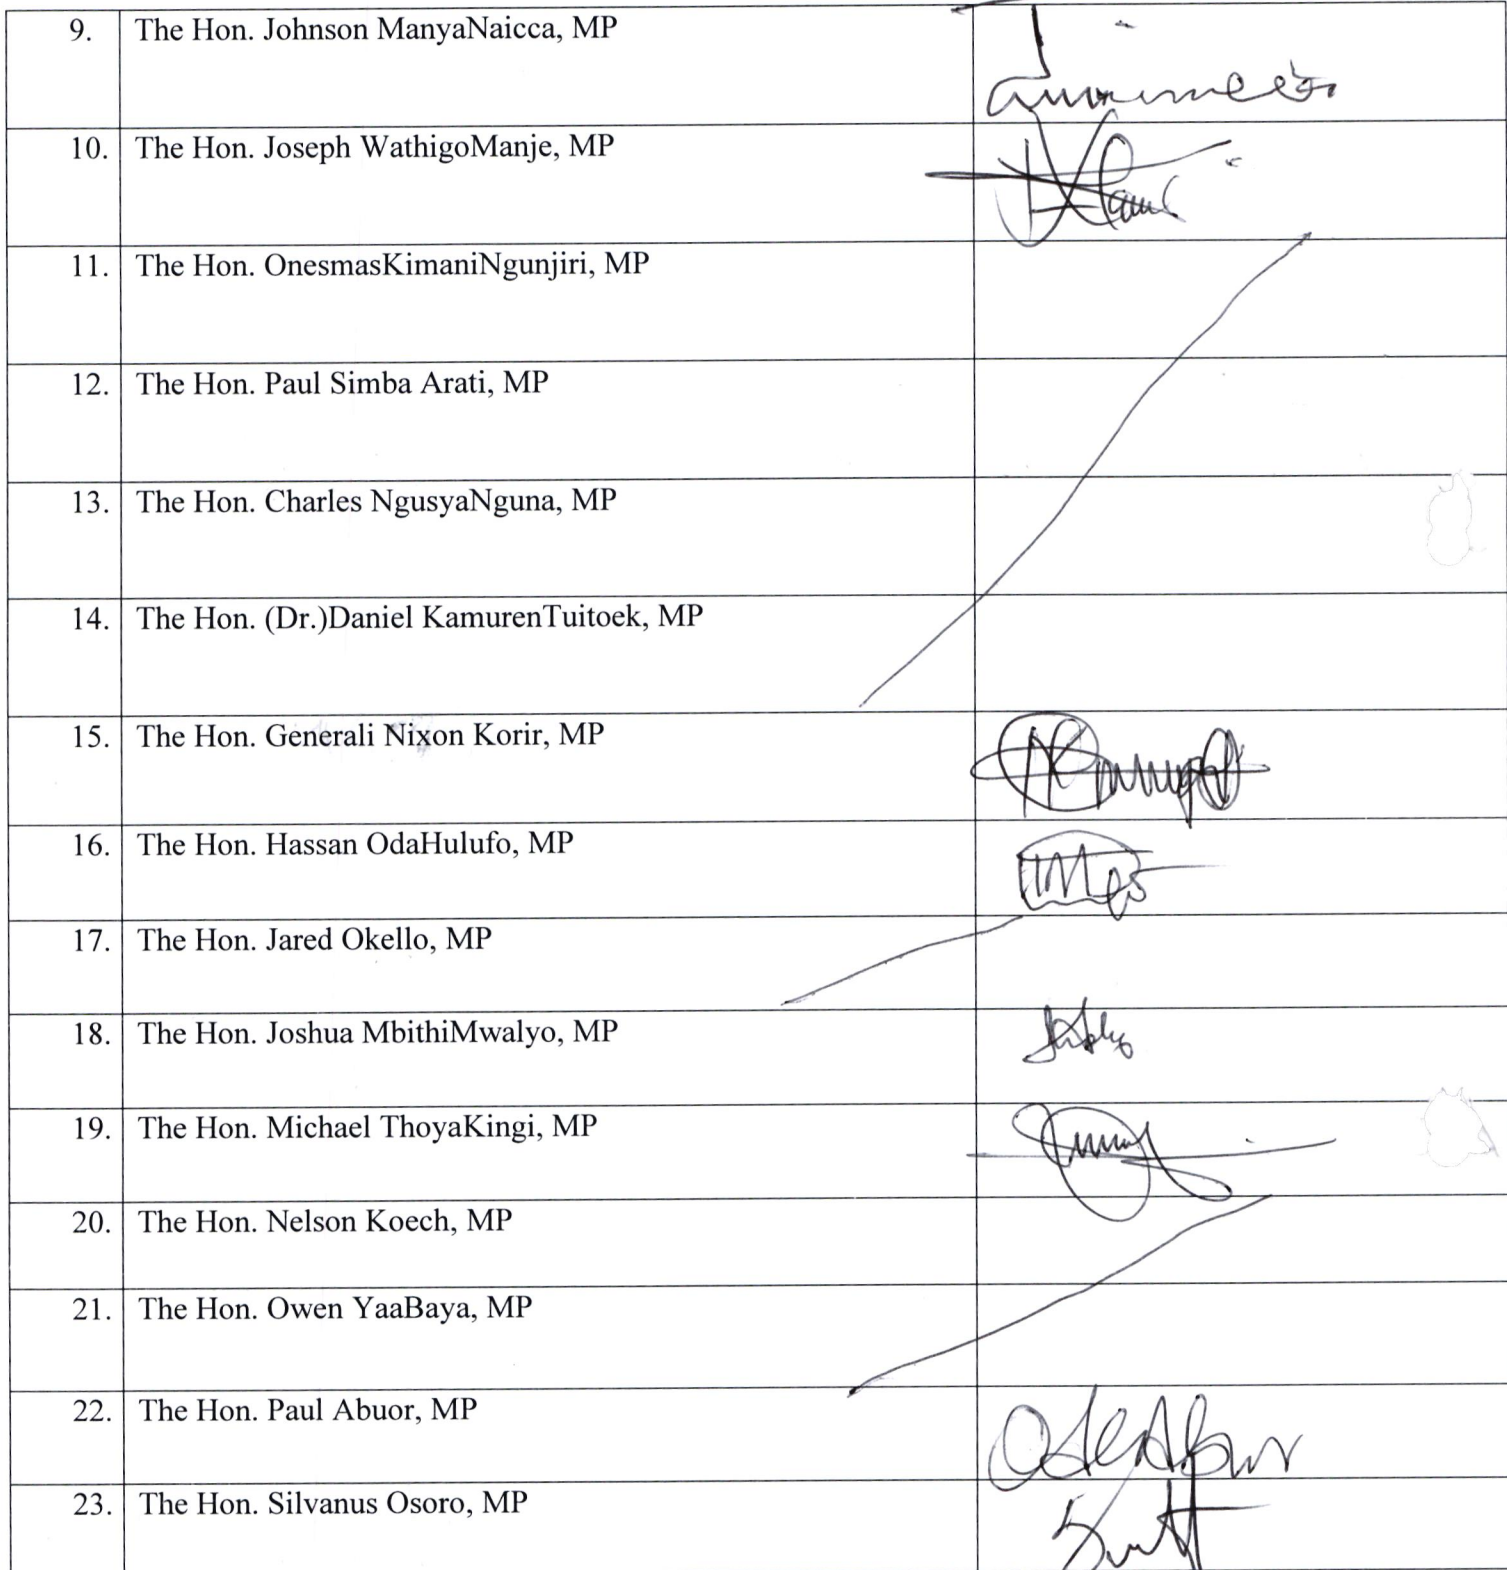 9. The Hon. Johnson ManyaNaicca, MP
10. The Hon. Joseph WathigoManje, MP
11. The Hon. OnesmasKimaniNgunjiri, MP
12. The Hon. Paul Simba Arati, MP
13. The Hon. Charles NgusyaNguna, MP
14. The Hon. (Dr.)Daniel KamurenTuitoek, MP
15. The Hon. Generali Nixon Korir, MP
16. The Hon. Hassan OdaHulufo, MP
17. The Hon. Jared Okello, MP
18. The Hon. Joshua MbithiMwalyo, MP
19. The Hon. Michael ThoyaKingi, MP
20. The Hon. Nelson Koech, MP
21. The Hon. Owen YaaBaya, MP
22. The Hon. Paul Abuor, MP
23. The Hon. Silvanus Osoro, MP